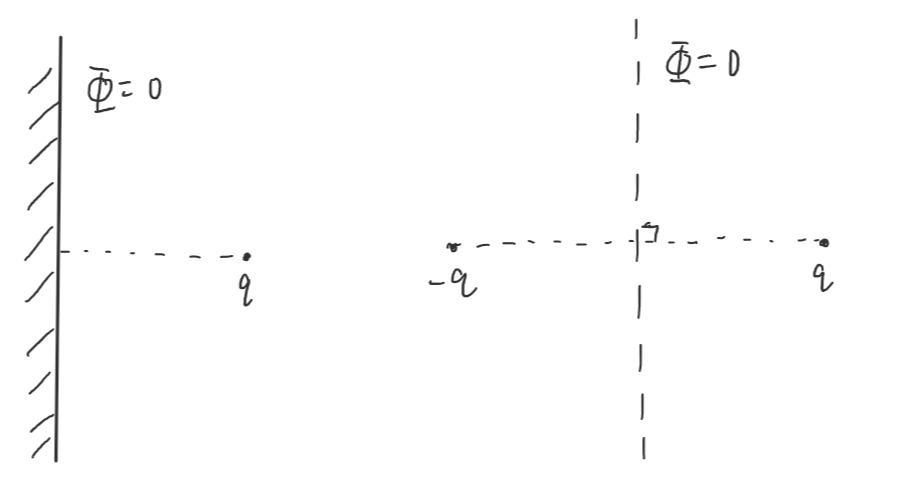 Φ = 0
q
Φ = 0
-q
q